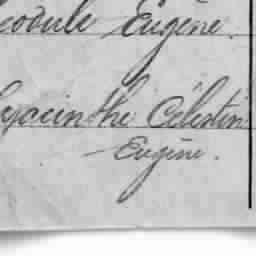 éodule Eugène.
Hyacinthe Célestin
Eugène.